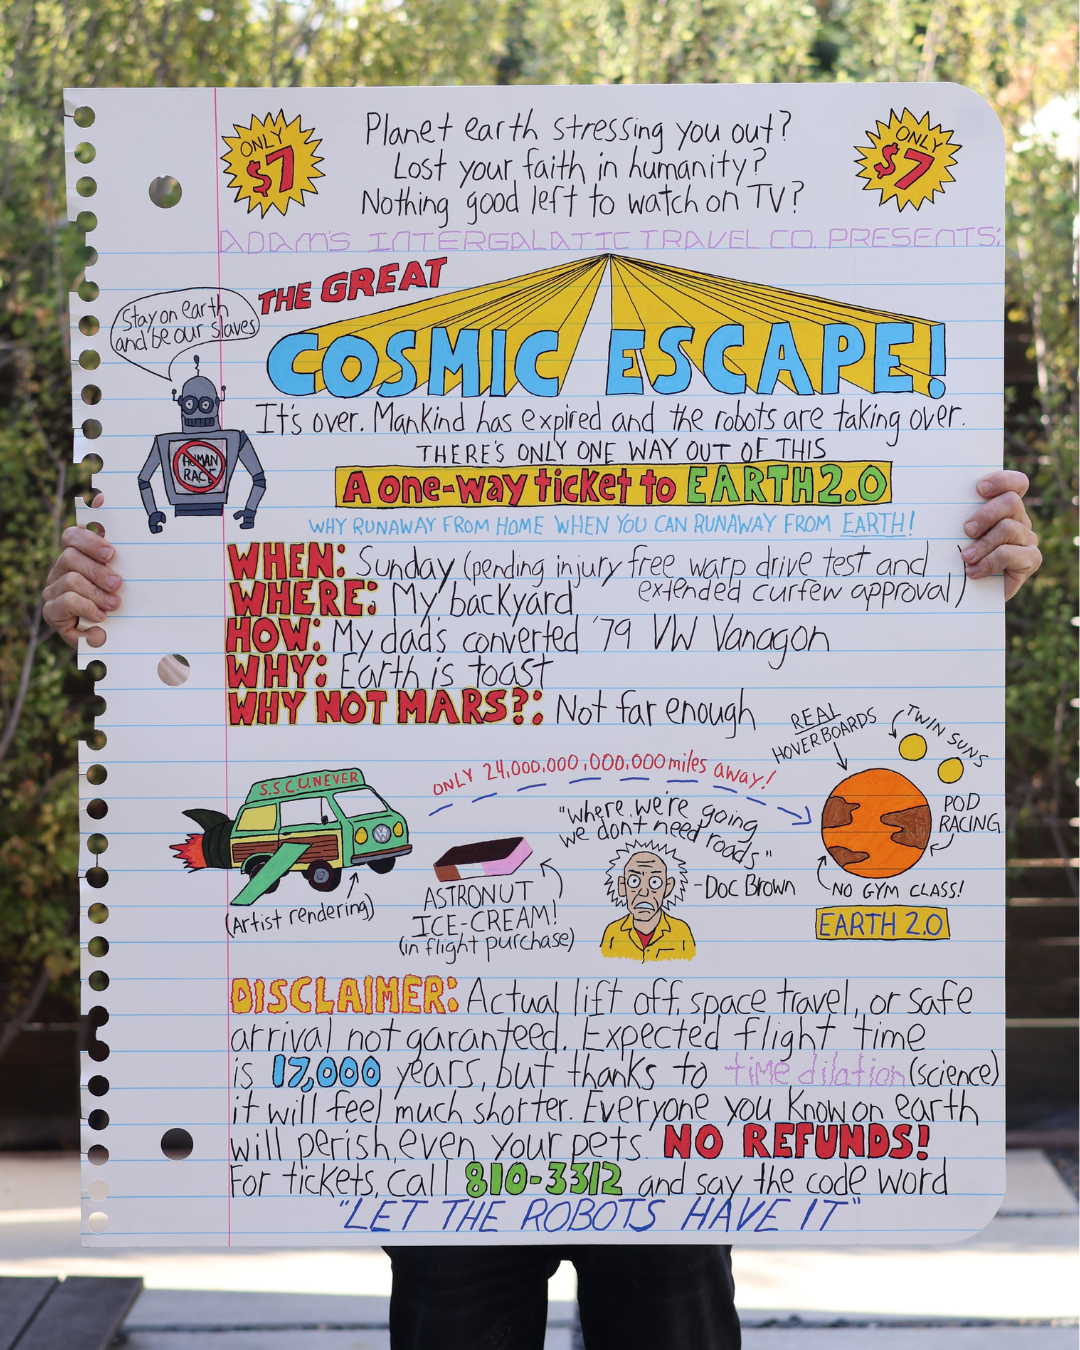 ONLY $7
Planet earth stressing you out?
Lost your faith in humanity?
Nothing good left to watch on TV?
ONLY $7
ADAM'S INTERGALATIC TRAVEL CO. PRESENTS:
THE GREAT
COSMIC ESCAPE!
Stay on earth
and be our slaves
HUMAN
RACE
It's over. Mankind has expired and the robots are taking over.
THERE'S ONLY ONE WAY OUT OF THIS
A one-way ticket to EARTH 2.0
WHY RUNAWAY FROM HOME WHEN YOU CAN RUNAWAY FROM EARTH!
WHEN: Sunday (pending injury free warp drive test and
extended curfew approval)
WHERE: My backyard
HOW: My dad's converted '79 VW Vanagon
WHY: Earth is toast
WHY NOT MARS?: Not far enough
S.S. C.U. NEVER
VW
(Artist rendering)
ONLY 24,000,000,000,000 miles away!
ASTRONUT
ICE-CREAM!
(in flight purchase)
"Where we're going
we don't need roads"
-Doc Brown
REAL
HOVERBOARDS
TWIN SUNS
POD
RACING
NO GYM CLASS!
EARTH 2.0
DISCLAIMER: Actual lift off, space travel, or safe
arrival not garanteed. Expected flight time
is 17,000 years, but thanks to time dilation (science)
it will feel much shorter. Everyone you know on earth
will perish, even your pets. NO REFUNDS!
For tickets, call 810-3312 and say the code word
"LET THE ROBOTS HAVE IT"